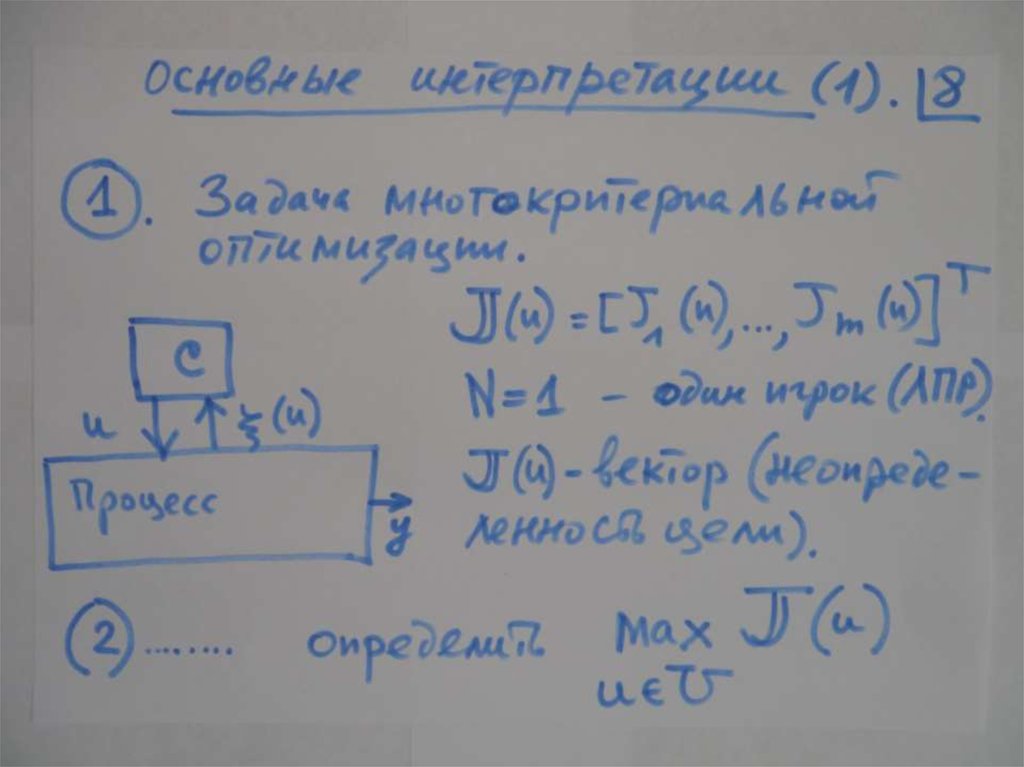 Основные интерпретации (1). 8
1. Задача многокритериальной
оптимизации.
𝕁(u) = [J₁(u),..., Jₘ(u)]ᵀ
C
N=1 – один игрок (ЛПР).
u ξ(u)
𝕁(u) - вектор (неопреде-
Процесс
y
ленность цели).
2 ........ определить max 𝕁(u)
u∈U